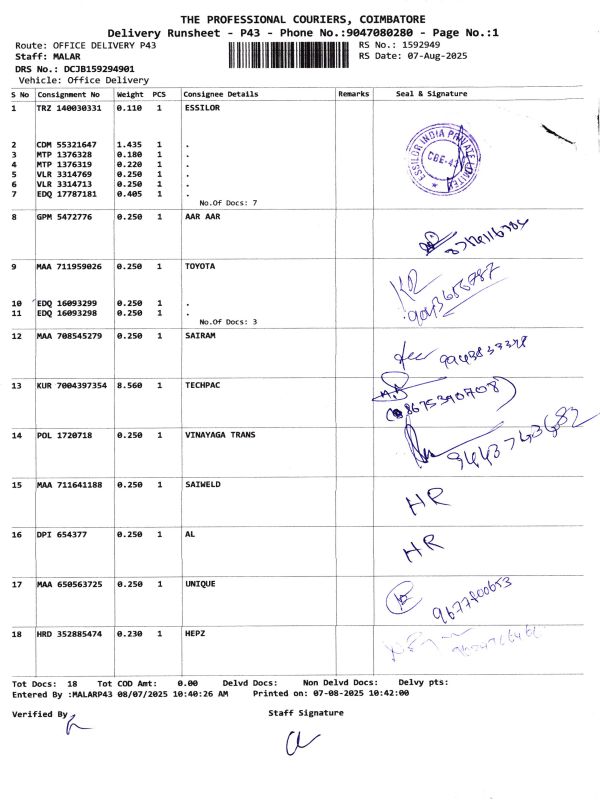 THE PROFESSIONAL COURIERS, COIMBATORE
Delivery Runsheet - P43 - Phone No.:9047080280 - Page No.:1
Route: OFFICE DELIVERY P43 RS No.: 1592949
Staff: MALAR RS Date: 07-Aug-2025
DRS No.: DCJB159294901
Vehicle: Office Delivery
S No Consignment No Weight PCS Consignee Details Remarks Seal & Signature
1 TRZ 140030331 0.110 1 ESSILOR
ESSILOR INDIA PRIVATE LIMITED
CBE-43
2 CDM 55321647 1.435 1 .
3 MTP 1376328 0.180 1 .
4 MTP 1376319 0.220 1 .
5 VLR 3314769 0.250 1 .
6 VLR 3314713 0.250 1 .
7 EDQ 17787181 0.405 1 .
No.Of Docs: 7
8 GPM 5472776 0.250 1 AAR AAR
9 MAA 711959026 0.250 1 TOYOTA
KR
9043656787
10 EDQ 16093299 0.250 1 .
11 EDQ 16093298 0.250 1 .
No.Of Docs: 3
12 MAA 708545279 0.250 1 SAIRAM
13 KUR 7004397354 8.560 1 TECHPAC
(8675390708)
14 POL 1720718 0.250 1 VINAYAGA TRANS
9443743682
15 MAA 711641188 0.250 1 SAIWELD
HR
16 DPI 654377 0.250 1 AL
HR
17 MAA 650563725 0.250 1 UNIQUE
9677700653
18 HRD 352885474 0.230 1 HEPZ
Tot Docs: 18 Tot COD Amt: 0.00 Delvd Docs: Non Delvd Docs: Delvy pts:
Entered By :MALARP43 08/07/2025 10:40:26 AM Printed on: 07-08-2025 10:42:00
Verified By Staff Signature